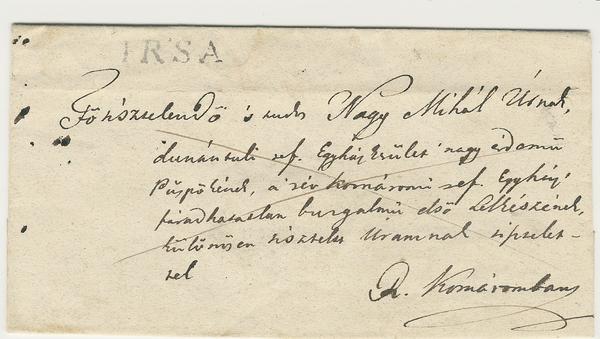 IRSA
Főtisztelendő 's tudós Nagy Mihál Úrnak,
dunántuli ref. Egyházkerület nagy érdemü
Püspökének, a rév komáromi ref. Egyház
fáradhatatlan buzgalmú első Lelkészének,
különösen tisztelt Uramnak tisztelet-
tel
R. Komáromban